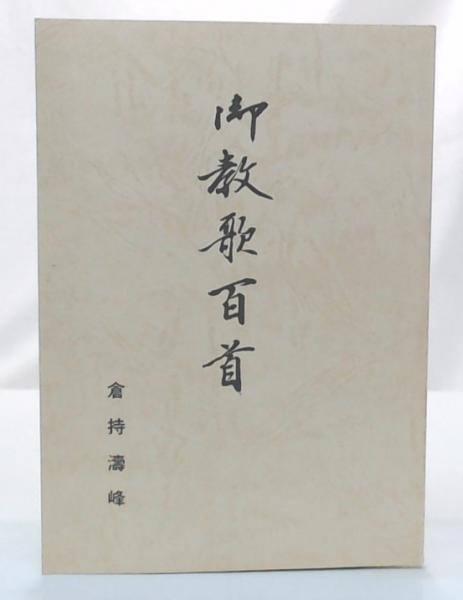 御教歌百首
倉持濤峰